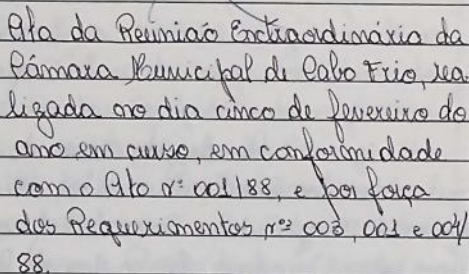 Ata da Reunião Extraordinária da
Câmara Municipal de Cabo Frio, rea
lizada no dia cinco de fevereiro do
ano em curso, em conformidade
com o Ato nº 001/88, e por força
dos Requerimentos nºs 003, 001 e 004/
88.